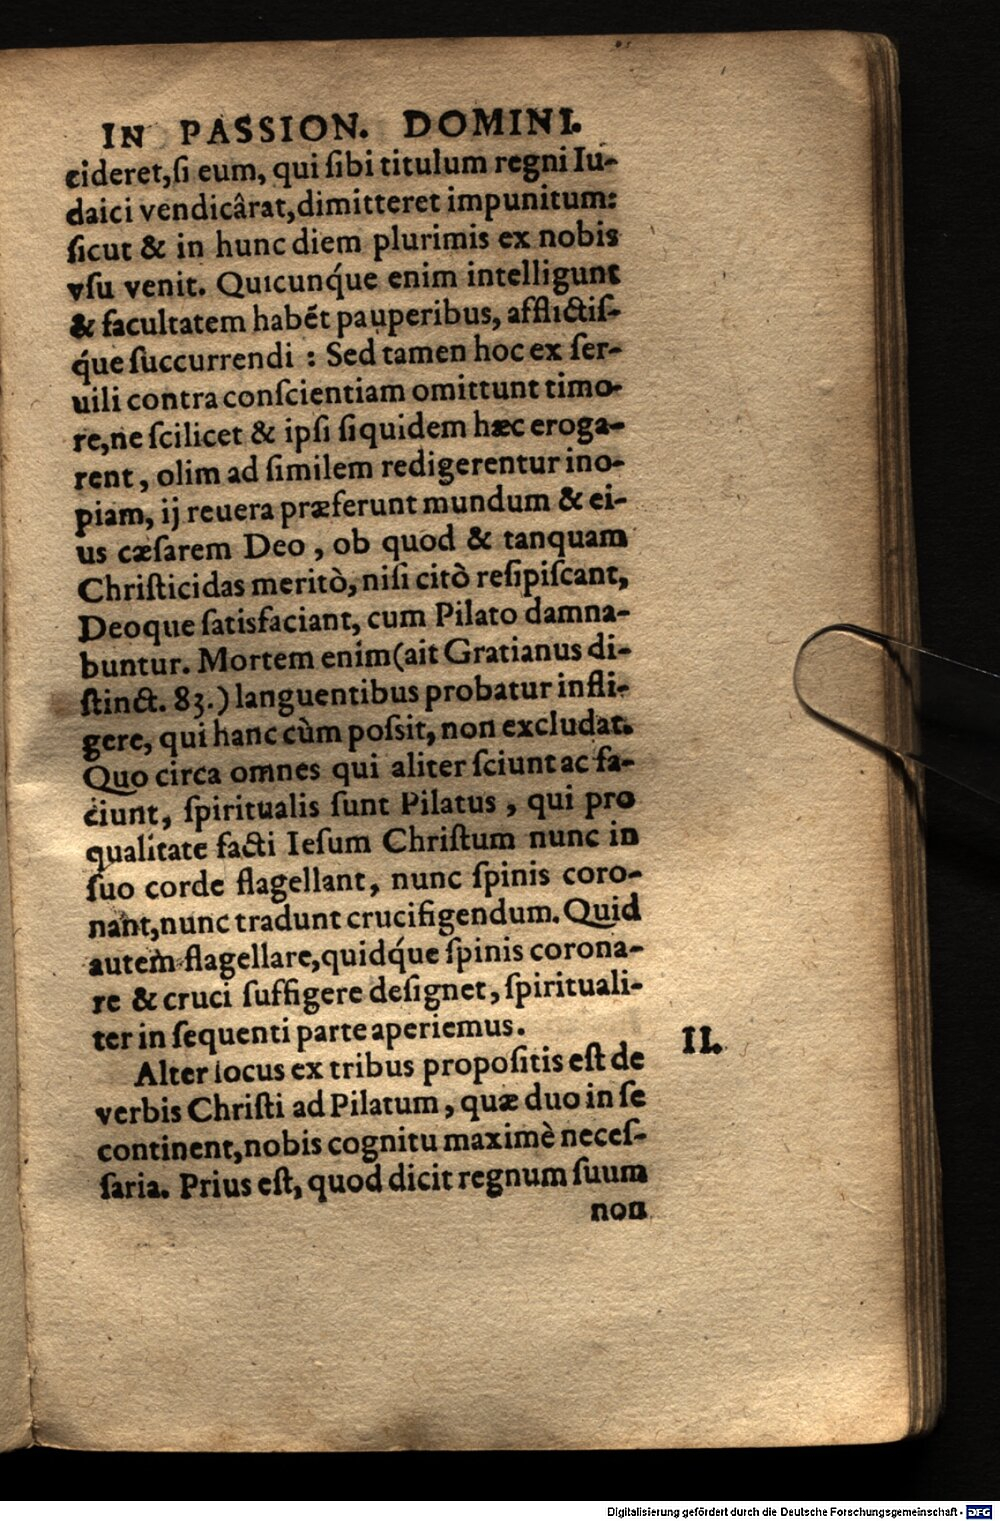 IN PASSION. DOMINI.
cideret,ſi eum, qui ſibi titulum regni Iu-
daici vendicârat,dimitteret impunitum:
ſicut & in hunc diem plurimis ex nobis
vſu venit. Quicunq́ue enim intelligunt
& facultatem habẽt pauperibus, afflictiſ-
q́ue ſuccurrendi : Sed tamen hoc ex ſer-
uili contra conſcientiam omittunt timo-
re,ne ſcilicet & ipſi ſiquidem hæc eroga-
rent, olim ad ſimilem redigerentur ino-
piam, ij reuera præferunt mundum & ei-
us cæſarem Deo, ob quod & tanquam
Chriſticidas meritò, niſi citò reſipiſcant,
Deoque ſatisfaciant, cum Pilato damna-
buntur. Mortem enim(ait Gratianus di-
ſtinct. 83.) languentibus probatur infli-
gere, qui hanc cùm poſsit, non excludat.
Quo circa omnes qui aliter ſciunt ac fa-
ciunt, ſpiritualis ſunt Pilatus, qui pro
qualitate facti Ieſum Chriſtum nunc in
ſuo corde flagellant, nunc ſpinis coro-
nant,nunc tradunt crucifigendum. Quid
autem flagellare,quidq́ue ſpinis corona-
re & cruci ſuffigere deſignet, ſpirituali-
ter in ſequenti parte aperiemus.
II.
Alter locus ex tribus propoſitis eſt de
verbis Chriſti ad Pilatum, quæ duo in ſe
continent,nobis cognitu maximè neceſ-
ſaria. Prius eſt, quod dicit regnum ſuum
non
Digitalisierung gefördert durch die Deutsche Forschungsgemeinschaft - DFG